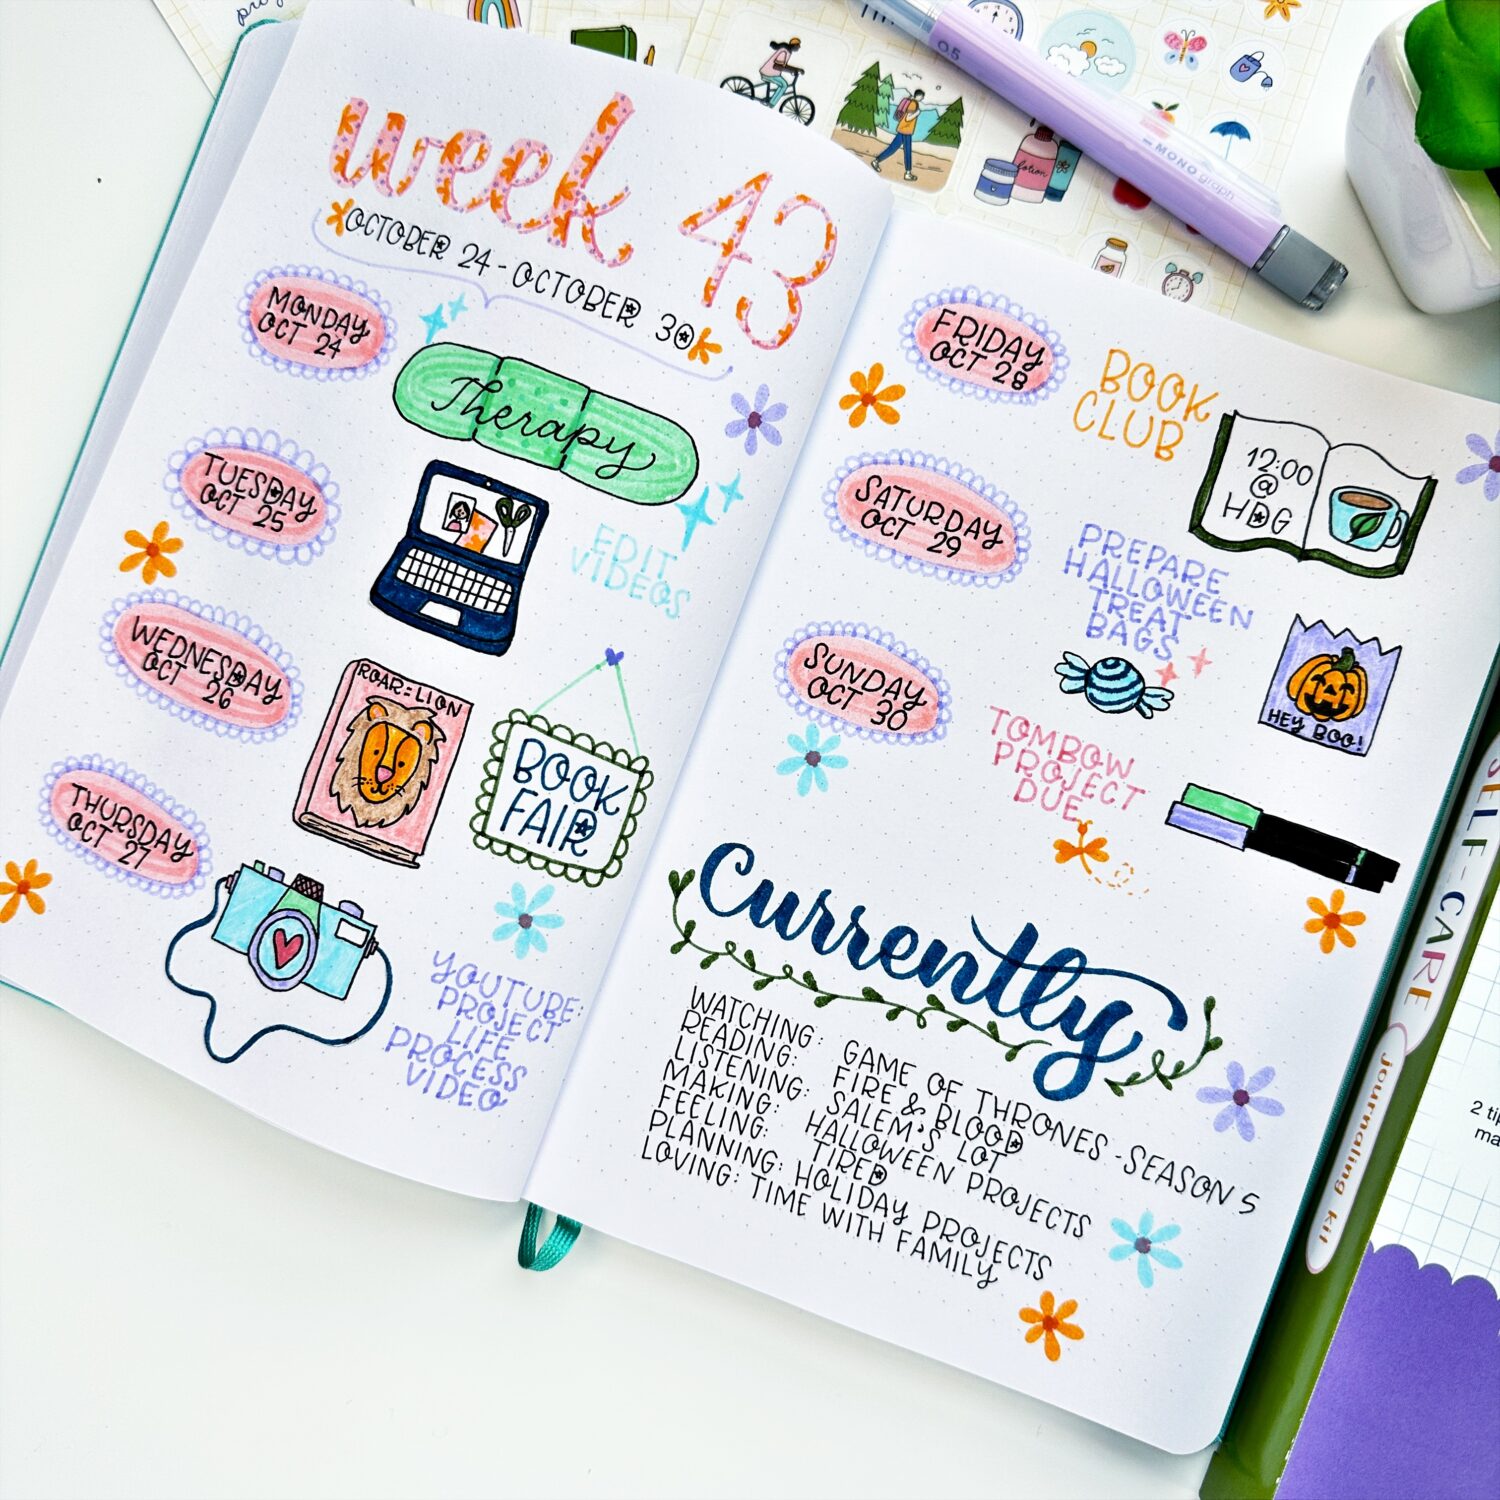 week 43
OCTOBER 24 - OCTOBER 30
MONDAY
OCT 24
Therapy
TUESDAY
OCT 25
EDIT
VIDEOS
WEDNESDAY
OCT 26
ROAR = LION
BOOK
FAIR
THURSDAY
OCT 27
YOUTUBE:
PROJECT
LIFE
PROCESS
VIDEO
FRIDAY
OCT 28
BOOK
CLUB
12:00
@
HDG
SATURDAY
OCT 29
PREPARE
HALLOWEEN
TREAT
BAGS
HEY BOO!
SUNDAY
OCT 30
TOMBOW
PROJECT
DUE
Currently
WATCHING: GAME OF THRONES - SEASON 5
READING: FIRE & BLOOD
LISTENING: SALEM'S LOT
MAKING: HALLOWEEN PROJECTS
FEELING: TIRED
PLANNING: HOLIDAY PROJECTS
LOVING: TIME WITH FAMILY
lotion
05
MONO graph
SELF-CARE
journaling kit
2